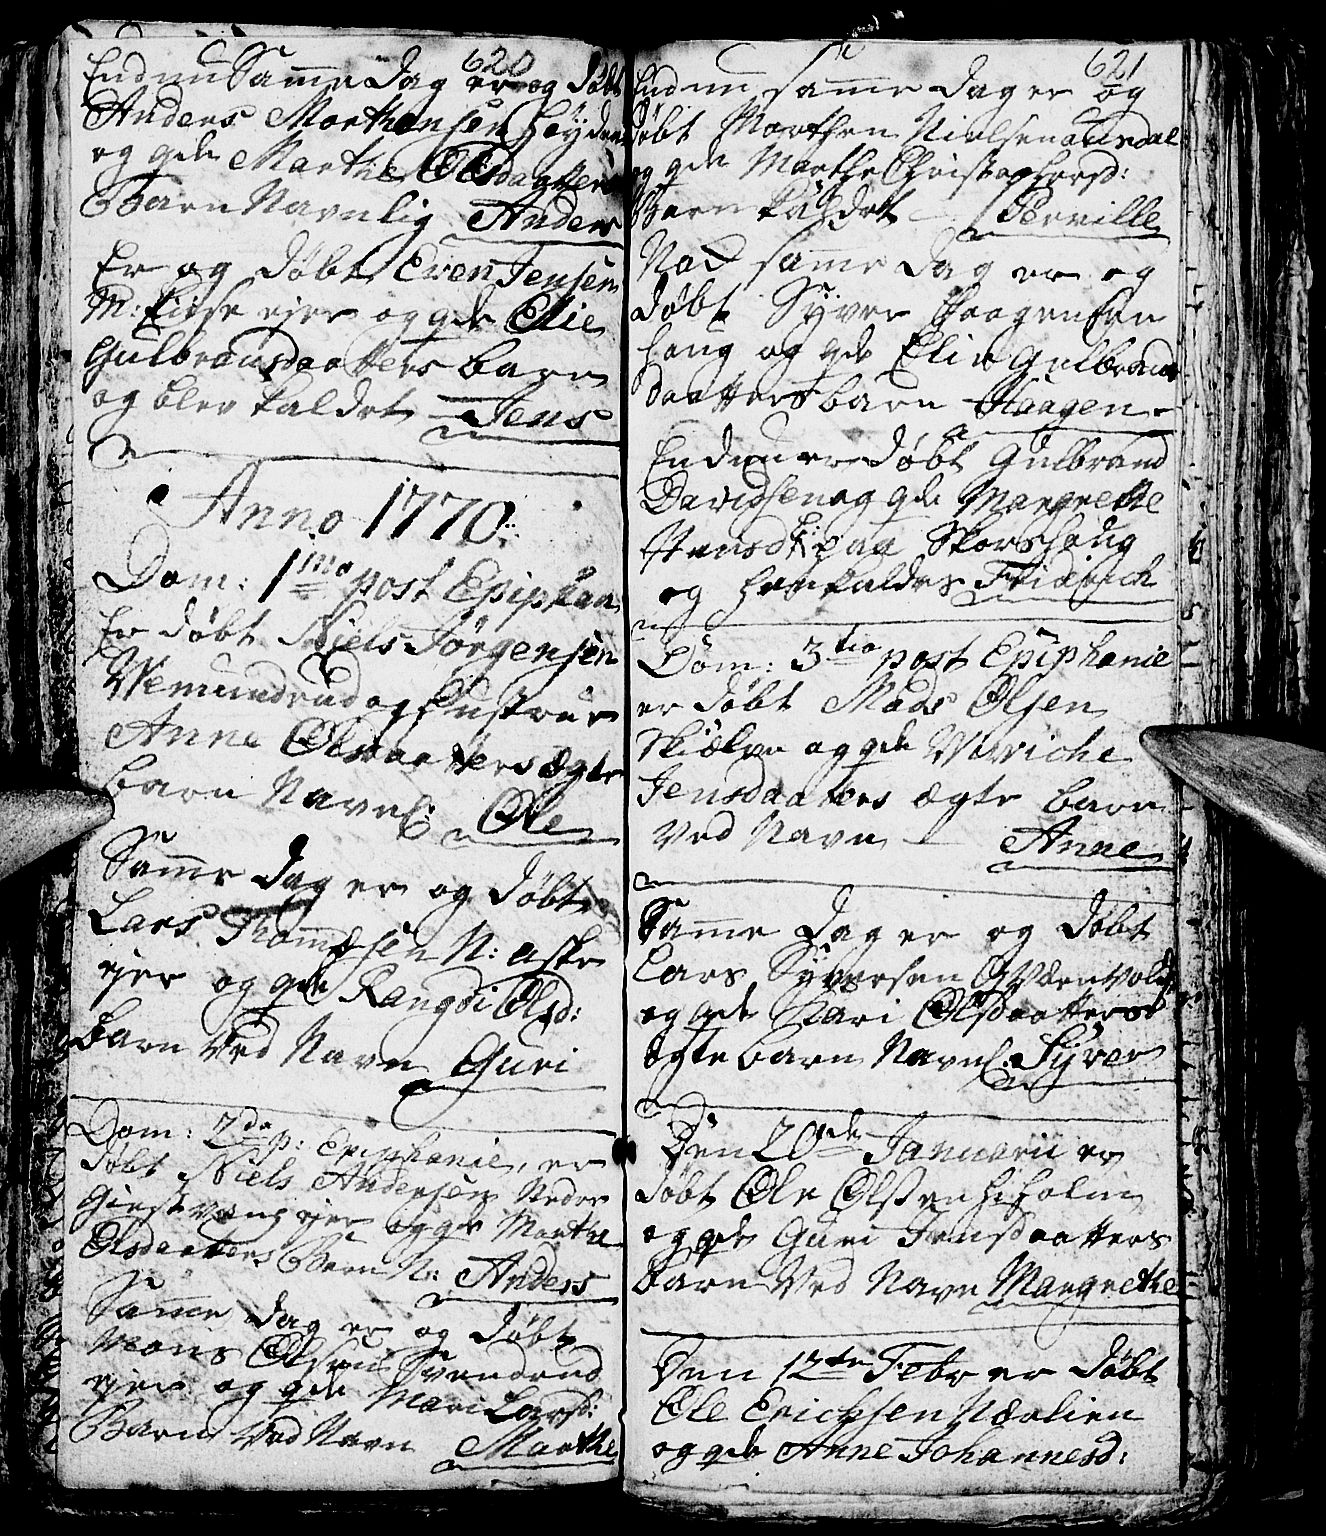 620
Endnu Same Dag er og døbt
Anders Morthensen Høyden
og qde Marthe Olsdaatters
Barn Navnlig Anders
Er og døbt Even Jensen
M: Eidse ejer og qde Elie
Gulbransdaatters barn
og blev kaldet Jens
Anno 1770
Dom: 1mo post Epiphan
Er døbt Niels Jörgensen
Wemundrud og Hustrue
Anne Olsdaatters ægte
barn Navnl: Ole
Same Dag er og døbt
Lars Thommesen N: aske
ejer og qde Rangdi Olsd:
barn Ved Navn Guri
Dom: 2da p: Epiphanie, er
døbt Niels Andersen Nedre
Giestvang ejer og qde Marthe
Olsdaatters Barn N: Anders
Same Dag er og døbt
Mons Olsen Svendrud
ejer og qde Mari Larsd:
Barn Ved Navn Marthe
621
Endnu same Dag er og
døbt Morthen Nielsen aurdal
og qde Marthe Christophersd:
Barn kaldet Perville
Nod same Dag er og
døbt Syver Haagensen
Haug og qde Elie Gulbrands
daatters barn Haagen
Endnu er døbt Gulbrand
Davidsen og qde Margrethe
Hansd: paa Skorshaug
og her kaldes Friderich
Dom: 3tia post Epiphanie
er døbt Mads Olsen
Skiælve og qde Wiviche
Jensdaaters ægte barn
Ved Navn Anne
Same Dag er og døbt
Lars Syversen Qværnvolds
og qde Kari Olsdaatters
ægte barn Navnl: Syver
Den 20de Januarii er
døbt Ole Olssen Hiholm
og qde Guri Jensdaatters
barn Ved Navn Margrethe
Den 12te Febr er døbt
Ole Erichsen Nærlien
og qde Anne Johannesd: